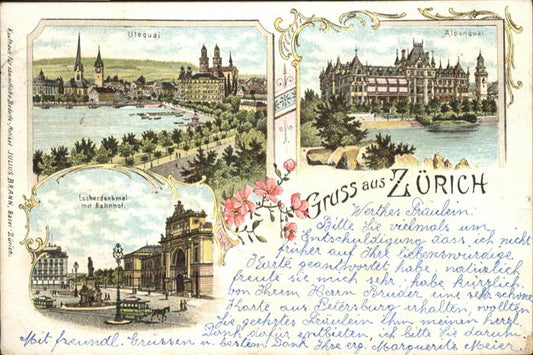 Utoquai
Alpenquai
Kaufhaus für sämmtliche Bedarfs-Artikel JULIUS BRANN, Basel-Zürich.
Escherdenkmal
mit Bahnhof.
Gruss aus ZÜRICH
Werthes Fräulein!
Bitte Sie vielmals um
Entschuldigung dass ich nicht
früher auf Ihre liebenswürdige
Karte geantwortet habe. natürlich
freute sie mich sehr. habe kürzlich
von Ihrem Herrn Bruder eine sehr schöne
Karte aus Petersburg erhalten, wollten
Sie geehrtes Fräulein Ihm meinen herzl.
Dank dafür entbieten, ich bitte Sie darum.
Mit freundl. Grüssen u. bestem Dank Ihre erg. Marguerite Meier.